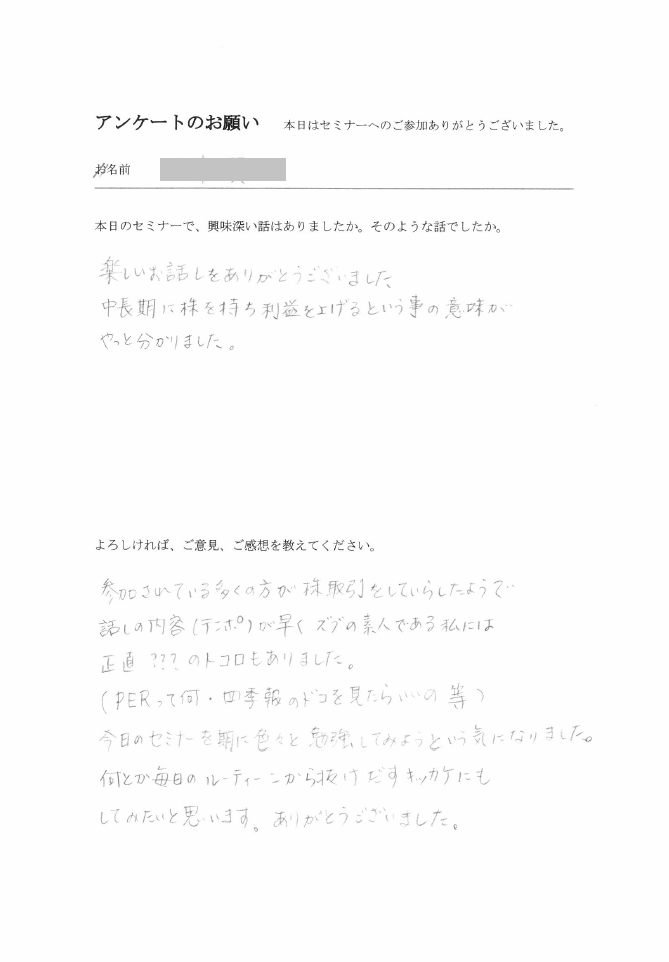 アンケートのお願い 本日はセミナーへのご参加ありがとうございました。
お名前
本日のセミナーで、興味深い話はありましたか。そのような話でしたか。
楽しいお話しをありがとうございました
中長期に株を持ち利益を上げるという事の意味が
やっと分かりました。
よろしければ、ご意見、ご感想を教えてください。
参加されている多くの方が株取引をしていらしたようで
話しの内容(テンポ)が早くズブの素人である私には
正直???のトコロもありました。
(PERって何・四季報のドコを見たらいいの等)
今日のセミナーを期に色々と勉強してみようという気になりました。
何とか毎日のルーティーンから抜けだすキッカケにも
してみたいと思います。ありがとうございました。